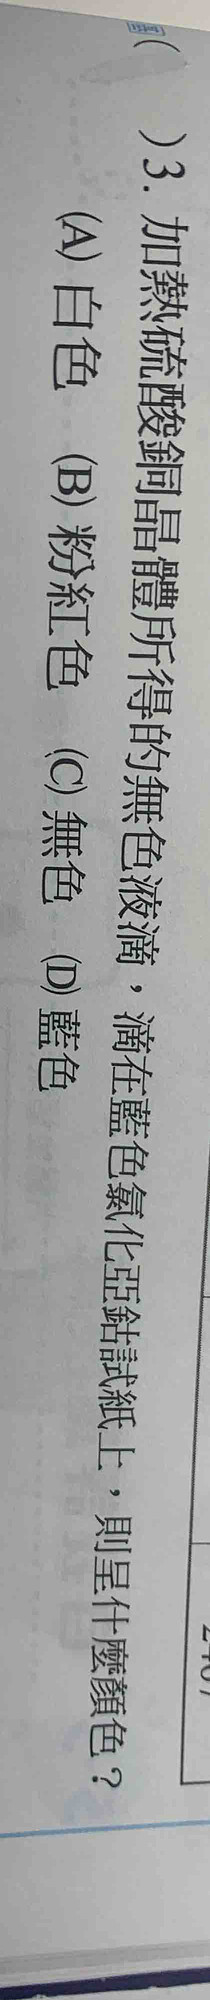 (　　)3. 加熱硫酸銅晶體所得的無色液滴，滴在藍色氯化亞鈷試紙上，則呈什麼顏色？
(A) 白色　(B) 粉紅色　(C) 無色　(D) 藍色